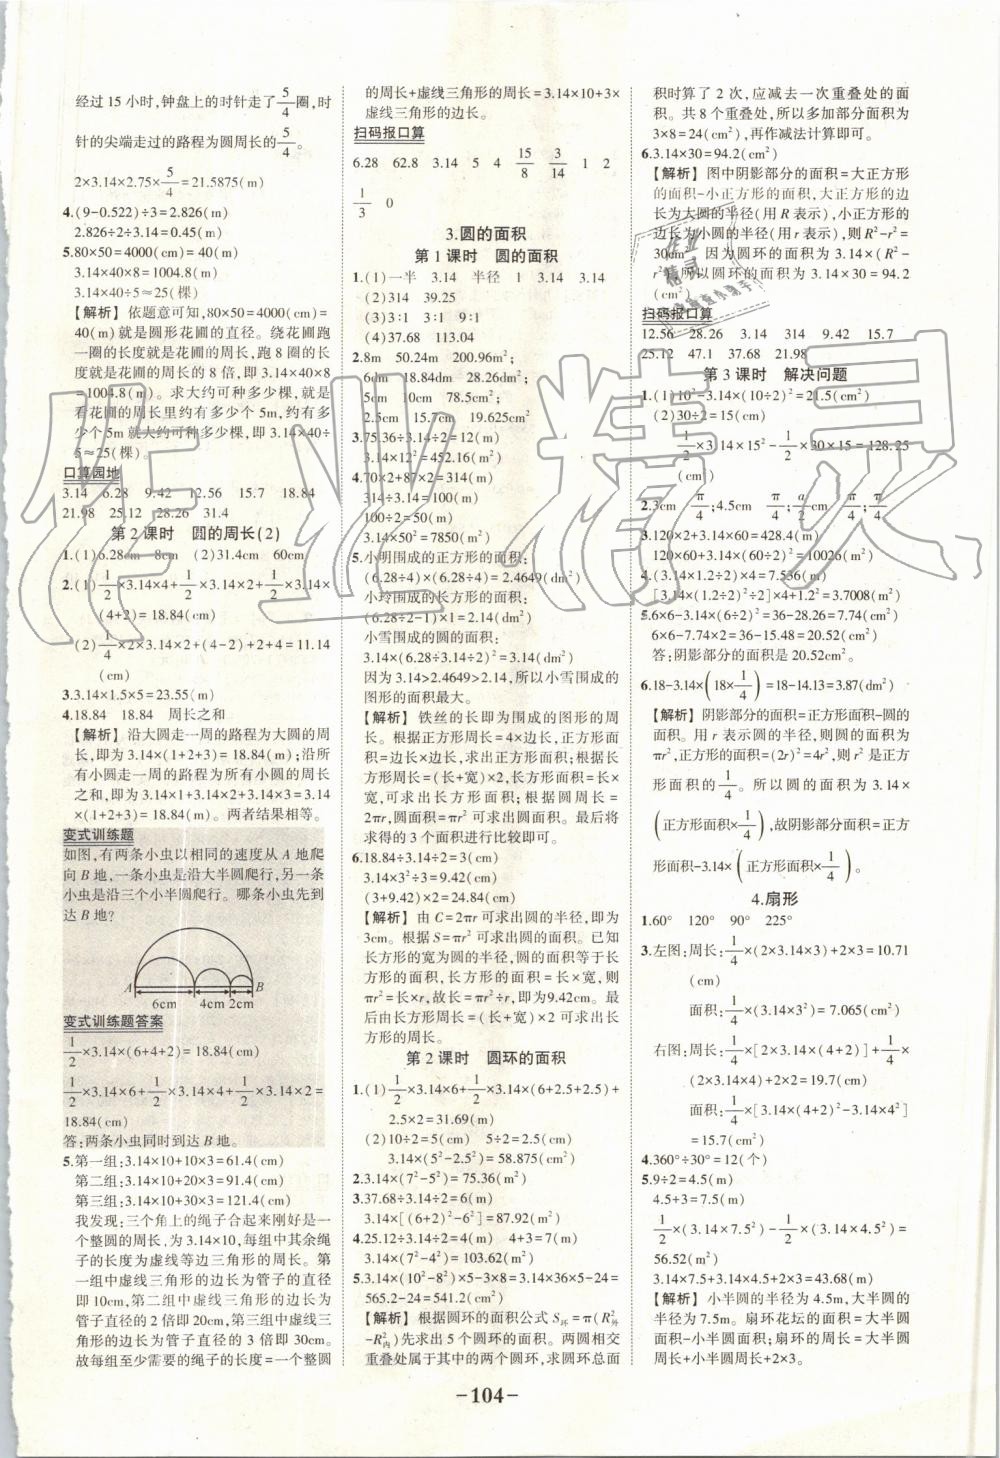 经过 15 小时,钟盘上的时针走了5/4圈,时
针的尖端走过的路程为圆周长的5/4。
2×3.14×2.75×5/4=21.5875(m)
4.(9-0.522)÷3=2.826(m)
2.826÷2÷3.14=0.45(m)
5.80×50=4000(cm)=40(m)
3.14×40×8=1004.8(m)
3.14×40÷5≈25(棵)
【解析】 依题意可知,80×50=4000(cm)=
40(m)就是圆形花圃的直径。绕花圃跑
一圈的长度就是花圃的周长,跑 8 圈的长
度就是花圃周长的 8 倍,即 3.14×40×8
=1004.8(m)。求大约可种多少棵,就是
看花圃的周长里约有多少个 5m,约有多
少个5m就大约可种多少棵,即3.14×40÷
5≈25(棵)。
口算园地
3.14 6.28 9.42 12.56 15.7 18.84
21.98 25.12 28.26 31.4
第 2 课时 圆的周长(2)
1.(1)6.28m 8cm (2)31.4cm 60cm
2.(1)1/2×3.14×4+1/2×3.14×2+1/2×3.14×
(4+2)=18.84(cm)
(2)1/4×2×3.14×2+(4-2)+2+4=11.14
(cm)
3.3.14×1.5×5=23.55(m)
4.18.84 18.84 周长之和
【解析】 沿大圆走一周的路程为大圆的周
长,即为3.14×(1+2+3)=18.84(m);沿所
有小圆走一周的路程为所有小圆的周长
之和,即为 3.14×1+3.14×2+3.14×3=3.14
×(1+2+3)=18.84(m)。两者结果相等。
变式训练题
如图,有两条小虫以相同的速度从 A 地爬
向 B 地,一条小虫是沿大半圆爬行,另一条
小虫是沿三个小半圆爬行。哪条小虫先到
达 B 地?
A B
6cm 4cm 2cm
变式训练题答案
1/2×3.14×(6+4+2)=18.84(cm)
1/2×3.14×6+1/2×3.14×4+1/2×3.14×2=
18.84(cm)
答:两条小虫同时到达 B 地。
5.第一组:3.14×10+10×3=61.4(cm)
第二组:3.14×10+20×3=91.4(cm)
第三组:3.14×10+30×3=121.4(cm)
我发现:三个角上的绳子合起来刚好是一
个整圆的周长,为 3.14×10,每组中其余绳
子的长度为虚线等边三角形的周长。第
一组中虚线三角形的边长为管子的直径
即10cm,第二组中虚线三角形的边长为
管子直径的 2 倍即 20cm,第三组中虚线三
角形的边长为管子直径的 3 倍即 30cm。
故每组至少需要的绳子的长度=一个整圆
的周长+虚线三角形的周长=3.14×10+3×
虚线三角形的边长。
扫码报口算
6.28 62.8 3.14 5 4 15/8 3/14 1 2
1/3 0
3.圆的面积
第 1 课时 圆的面积
1.(1)一半 3.14 半径 1 3.14 3.14
(2)314 39.25
(3)3:1 3:1 9:1
(4)37.68 113.04
2.8m 50.24m 200.96m²;
6dm 18.84dm 28.26dm²;
5cm 10cm 78.5cm²;
2.5cm 15.7cm 19.625cm²
3.75.36÷3.14÷2=12(m)
3.14×12²=452.16(m²)
4.70×2+87×2=314(m)
314÷3.14=100(m)
100÷2=50(m)
3.14×50²=7850(m²)
5.小明围成的正方形的面积:
(6.28÷4)×(6.28÷4)=2.4649(dm²)
小玲围成的长方形的面积:
(6.28÷2-1)×1=2.14(dm²)
小雪围成的圆的面积:
3.14×(6.28÷3.14÷2)²=3.14(dm²)
因为 3.14>2.4649>2.14,所以小雪围成的
图形的面积最大。
【解析】 铁丝的长即为围成的图形的周
长。根据正方形周长=4×边长,正方形面
积=边长×边长,求出正方形面积;根据长
方形周长=(长+宽)×2,长方形面积=长×
宽,可求出长方形面积;根据圆周长=
2πr,圆面积=πr² 可求出圆面积。最后将
求得的 3 个面积进行比较即可。
6.18.84÷3.14÷2=3(cm)
3.14×3²÷3=9.42(cm)
(3+9.42)×2=24.84(cm)
【解析】 由 C=2πr 可求出圆的半径,即为
3cm。根据 S=πr² 可求出圆的面积。已知
长方形的宽为圆的半径,圆的面积等于长
方形的面积,长方形的面积=长×宽,则
πr²=长×r,故长=πr²÷r,即为9.42cm。最
后由长方形周长=(长+宽)×2 可求出长
方形的周长。
第 2 课时 圆环的面积
1.(1)1/2×3.14×6+1/2×3.14×(6+2.5+2.5)+
2.5×2=31.69(m)
(2)10÷2=5(cm) 5÷2=2.5(cm)
3.14×(5²-2.5²)=58.875(cm²)
2.3.14×(7²-5²)=75.36(m²)
3.37.68÷3.14÷2=6(m)
3.14×[(6+2)²-6²]=87.92(m²)
4.25.12÷3.14÷2=4(m) 4+3=7(m)
3.14×(7²-4²)=103.62(m²)
5.3.14×(10²-8²)×5-3×8=3.14×36×5-24=
565.2-24=541.2(cm²)
【解析】 根据圆环的面积公式 S环=π(R²外
-R²内)先求出 5 个圆环的面积。两圆相交
重叠处属于其中的两个圆环,求圆环总面
积时算了 2 次,应减去一次重叠处的面
积。共 8 个重叠处,所以多加部分面积为
3×8=24(cm²),再作减法计算即可。
6.3.14×30=94.2(cm²)
【解析】 图中阴影部分的面积=大正方形
的面积-小正方形的面积,大正方形的边
长为大圆的半径(用 R 表示),小正方形
的边长为小圆的半径(用 r 表示),则R²-r²=
30cm² 因为圆环的面积为 3.14×(R²-
r²),所以圆环的面积为 3.14×30=94.2
(cm²)。
扫码报口算
12.56 28.26 3.14 314 9.42 15.7
25.12 47.1 37.68 21.98
第 3 课时 解决问题
1.(1)10²-3.14×(10÷2)²=21.5(cm²)
(2)30÷2=15(cm)
1/2×3.14×15²-1/2×30×15=128.25
(cm²)
2.3cm π/4;4.5cm π/4;a/2cm π/4
3.120×2+3.14×60=428.4(m)
120×60+3.14×(60÷2)²=10026(m²)
4.(3.14×1.2÷2)×4=7.536(m)
[3.14×(1.2÷2)²÷2]×4+1.2²=3.7008(m²)
5.6×6-3.14×(6÷2)²=36-28.26=7.74(cm²)
6×6-7.74×2=36-15.48=20.52(cm²)
答:阴影部分的面积是 20.52cm²。
6.18-3.14×(18×1/4)=18-14.13=3.87(dm²)
【解析】 阴影部分的面积=正方形面积-圆的
面积。用 r 表示圆的半径,则圆的面积为
πr²,正方形的面积=(2r)²=4r²,则 r² 是正方
形面积的1/4。所以圆的面积为 3.14×
(正方形面积×1/4),故阴影部分面积=正方
形面积-3.14×(正方形面积×1/4)。
4.扇形
1.60° 120° 90° 225°
3.左图:周长:1/4×(2×3.14×3)+2×3=10.71
(cm)
面积:1/4×3.14×3²=7.065(cm²)
右图:周长:1/4×[2×3.14×(4+2)]+1/4×
(2×3.14×4)+2×2=19.7(cm)
面积:1/4×[3.14×(4+2)²-3.14×4²]
=15.7(cm²)
4.360°÷30°=12(个)
5.9÷2=4.5(m)
4.5+3=7.5(m)
1/2×(3.14×7.5²)-1/2×(3.14×4.5²)=
56.52(m²)
3.14×7.5+3.14×4.5+3×2=43.68(m)
【解析】 小半圆的半径为 4.5m,大半圆的
半径为 7.5m。扇环花坛的面积=大半圆
面积-小半圆面积;扇环的周长=大半圆
周长+小半圆周长+2×3。
-104-
作业精灵